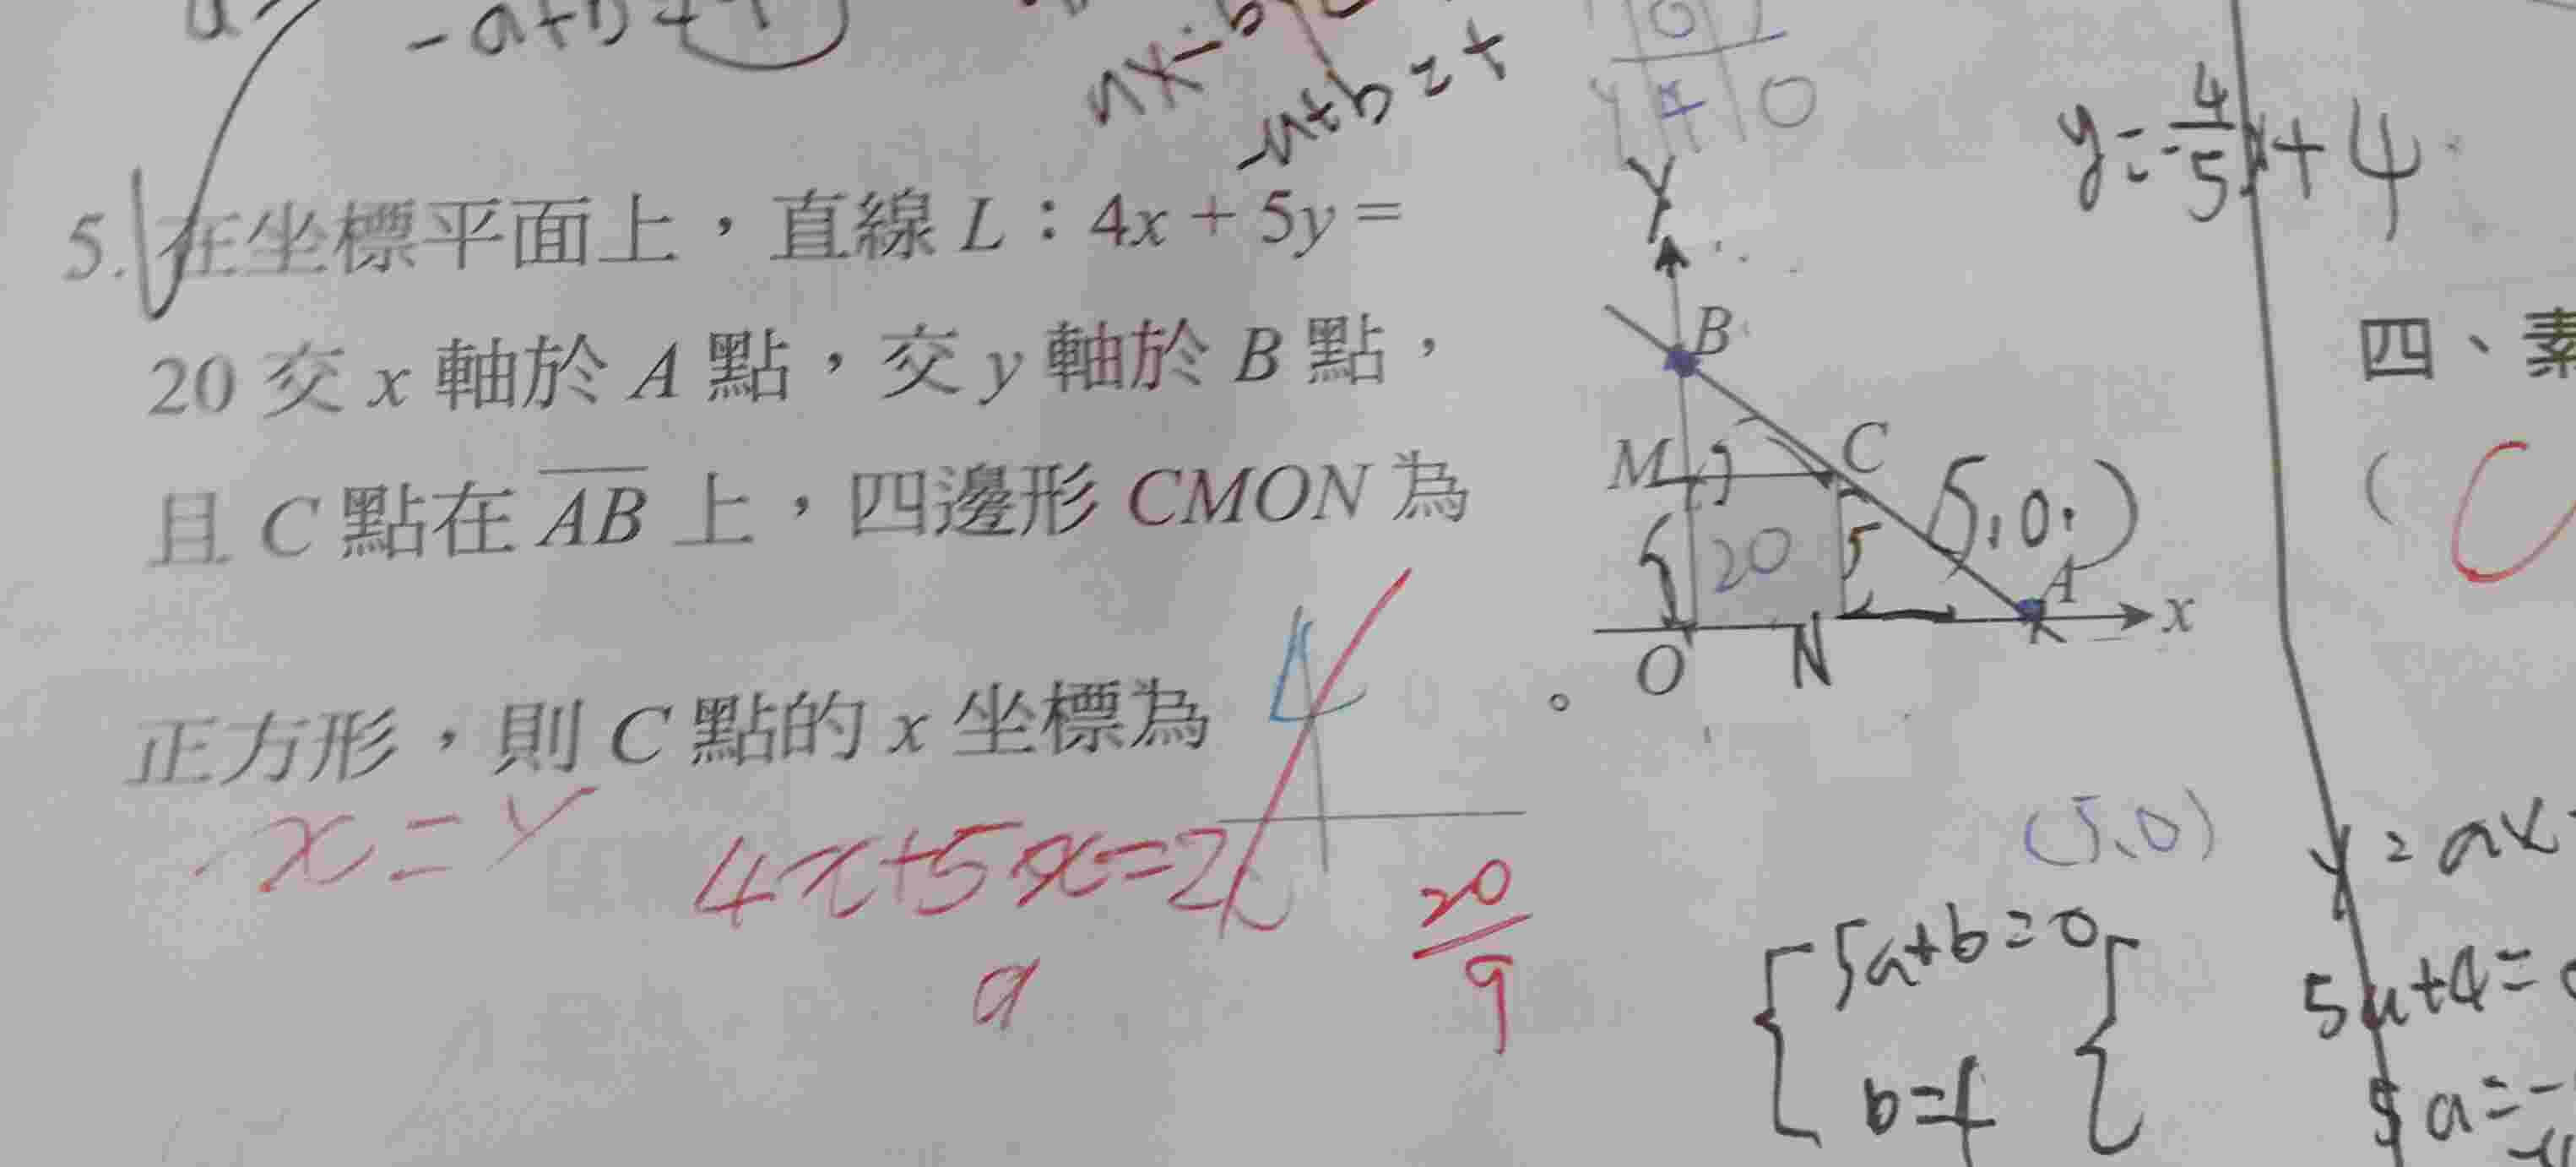 -a+b=4
-a+b=4
0
4 0
y=-4/5x+4
5. 在坐標平面上，直線 L：4x + 5y =
20 交 x 軸於 A 點，交 y 軸於 B 點，
且 C 點在 AB 上，四邊形 CMON 為
正方形，則 C 點的 x 坐標為 4 。
Y
B
M
C
20
5
(5,0)
A
x
O
N
四、素
(
C
x=y
4x+5x=20
9
20/9
(5,0)
5a+b=0
b=4
y=ax
5a+4=
5a=-